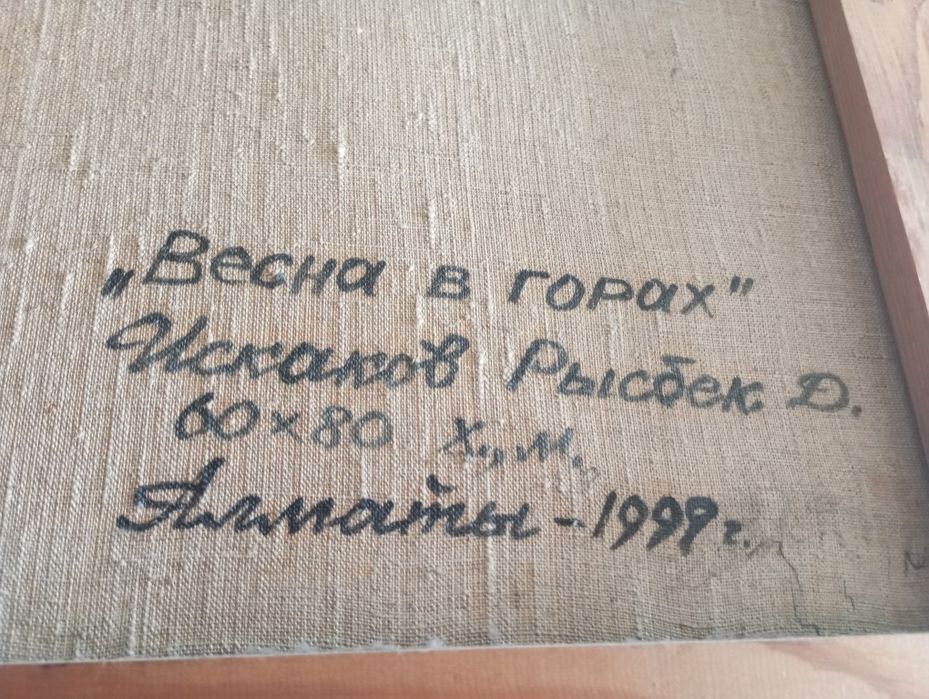 „Весна в горах"
Искаков Рысбек Д.
60×80 х.,м.,
Алматы - 1999 г.